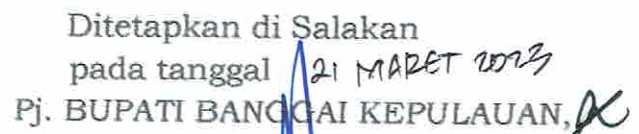 Ditetapkan di Salakan
pada tanggal 21 MARET 2023
Pj. BUPATI BANGGAI KEPULAUAN,